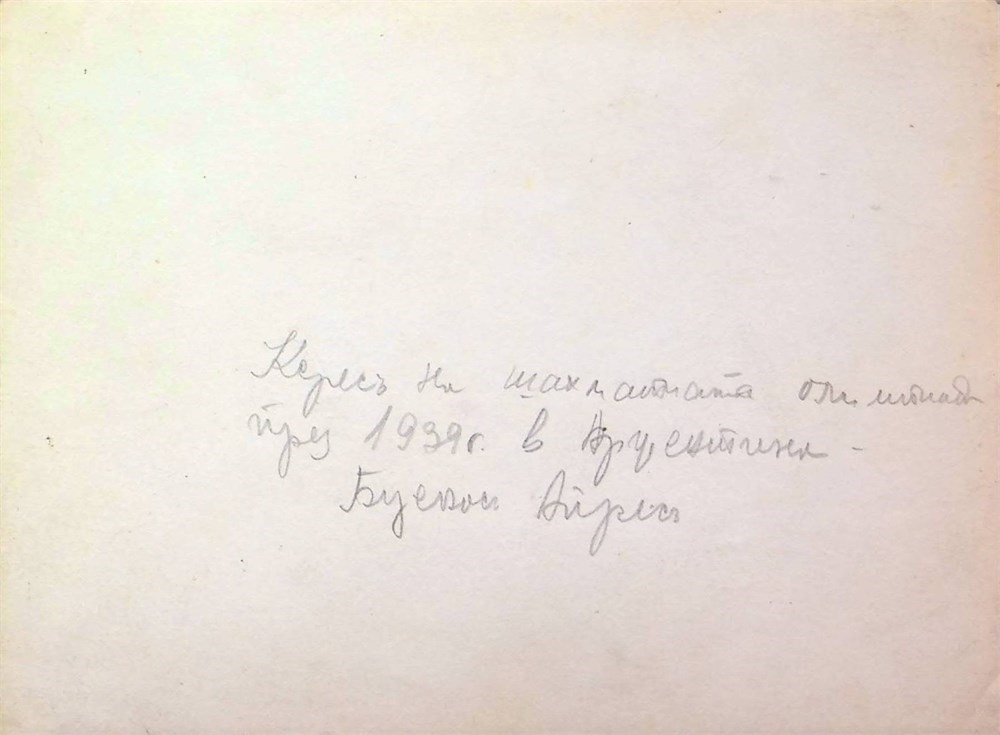 Керес на шахматната олимпиада
през 1939г. в Аржентина -
Буенос Айрес